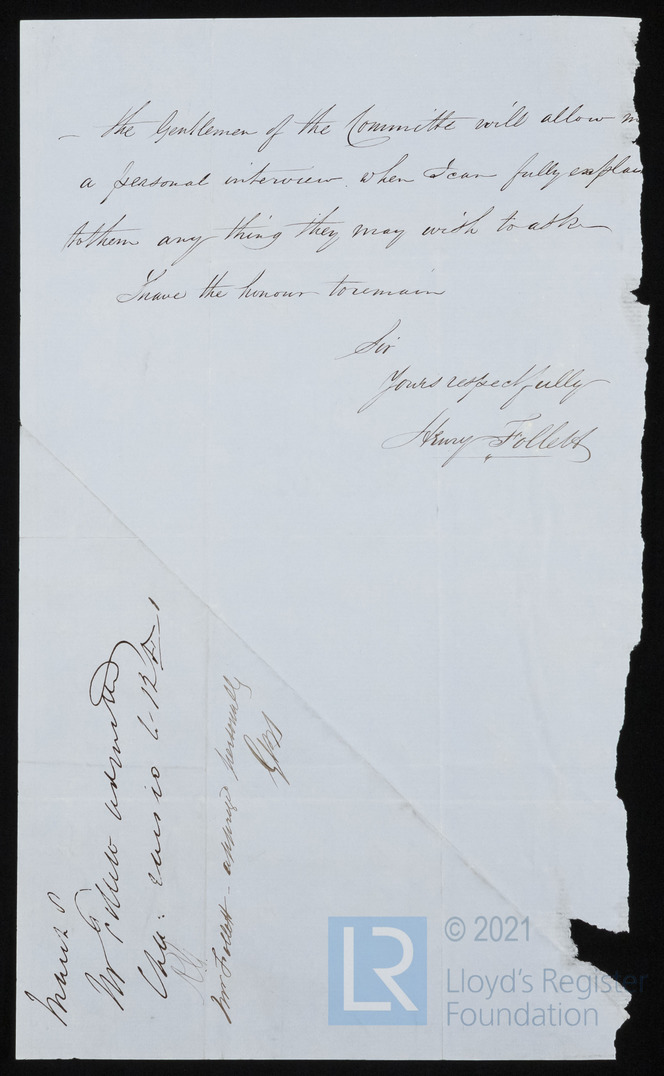 — the Gentlemen of the Committe will allow m
a personal interview, when I can fully explain
to them any thing they may wish to ask
I have the honour to remain
Sir
Yours respectfully
Henry Follett
March 8
Mr Follett
Mr Follett - appeared personally
LR
© 2021
Lloyd's Register
Foundation